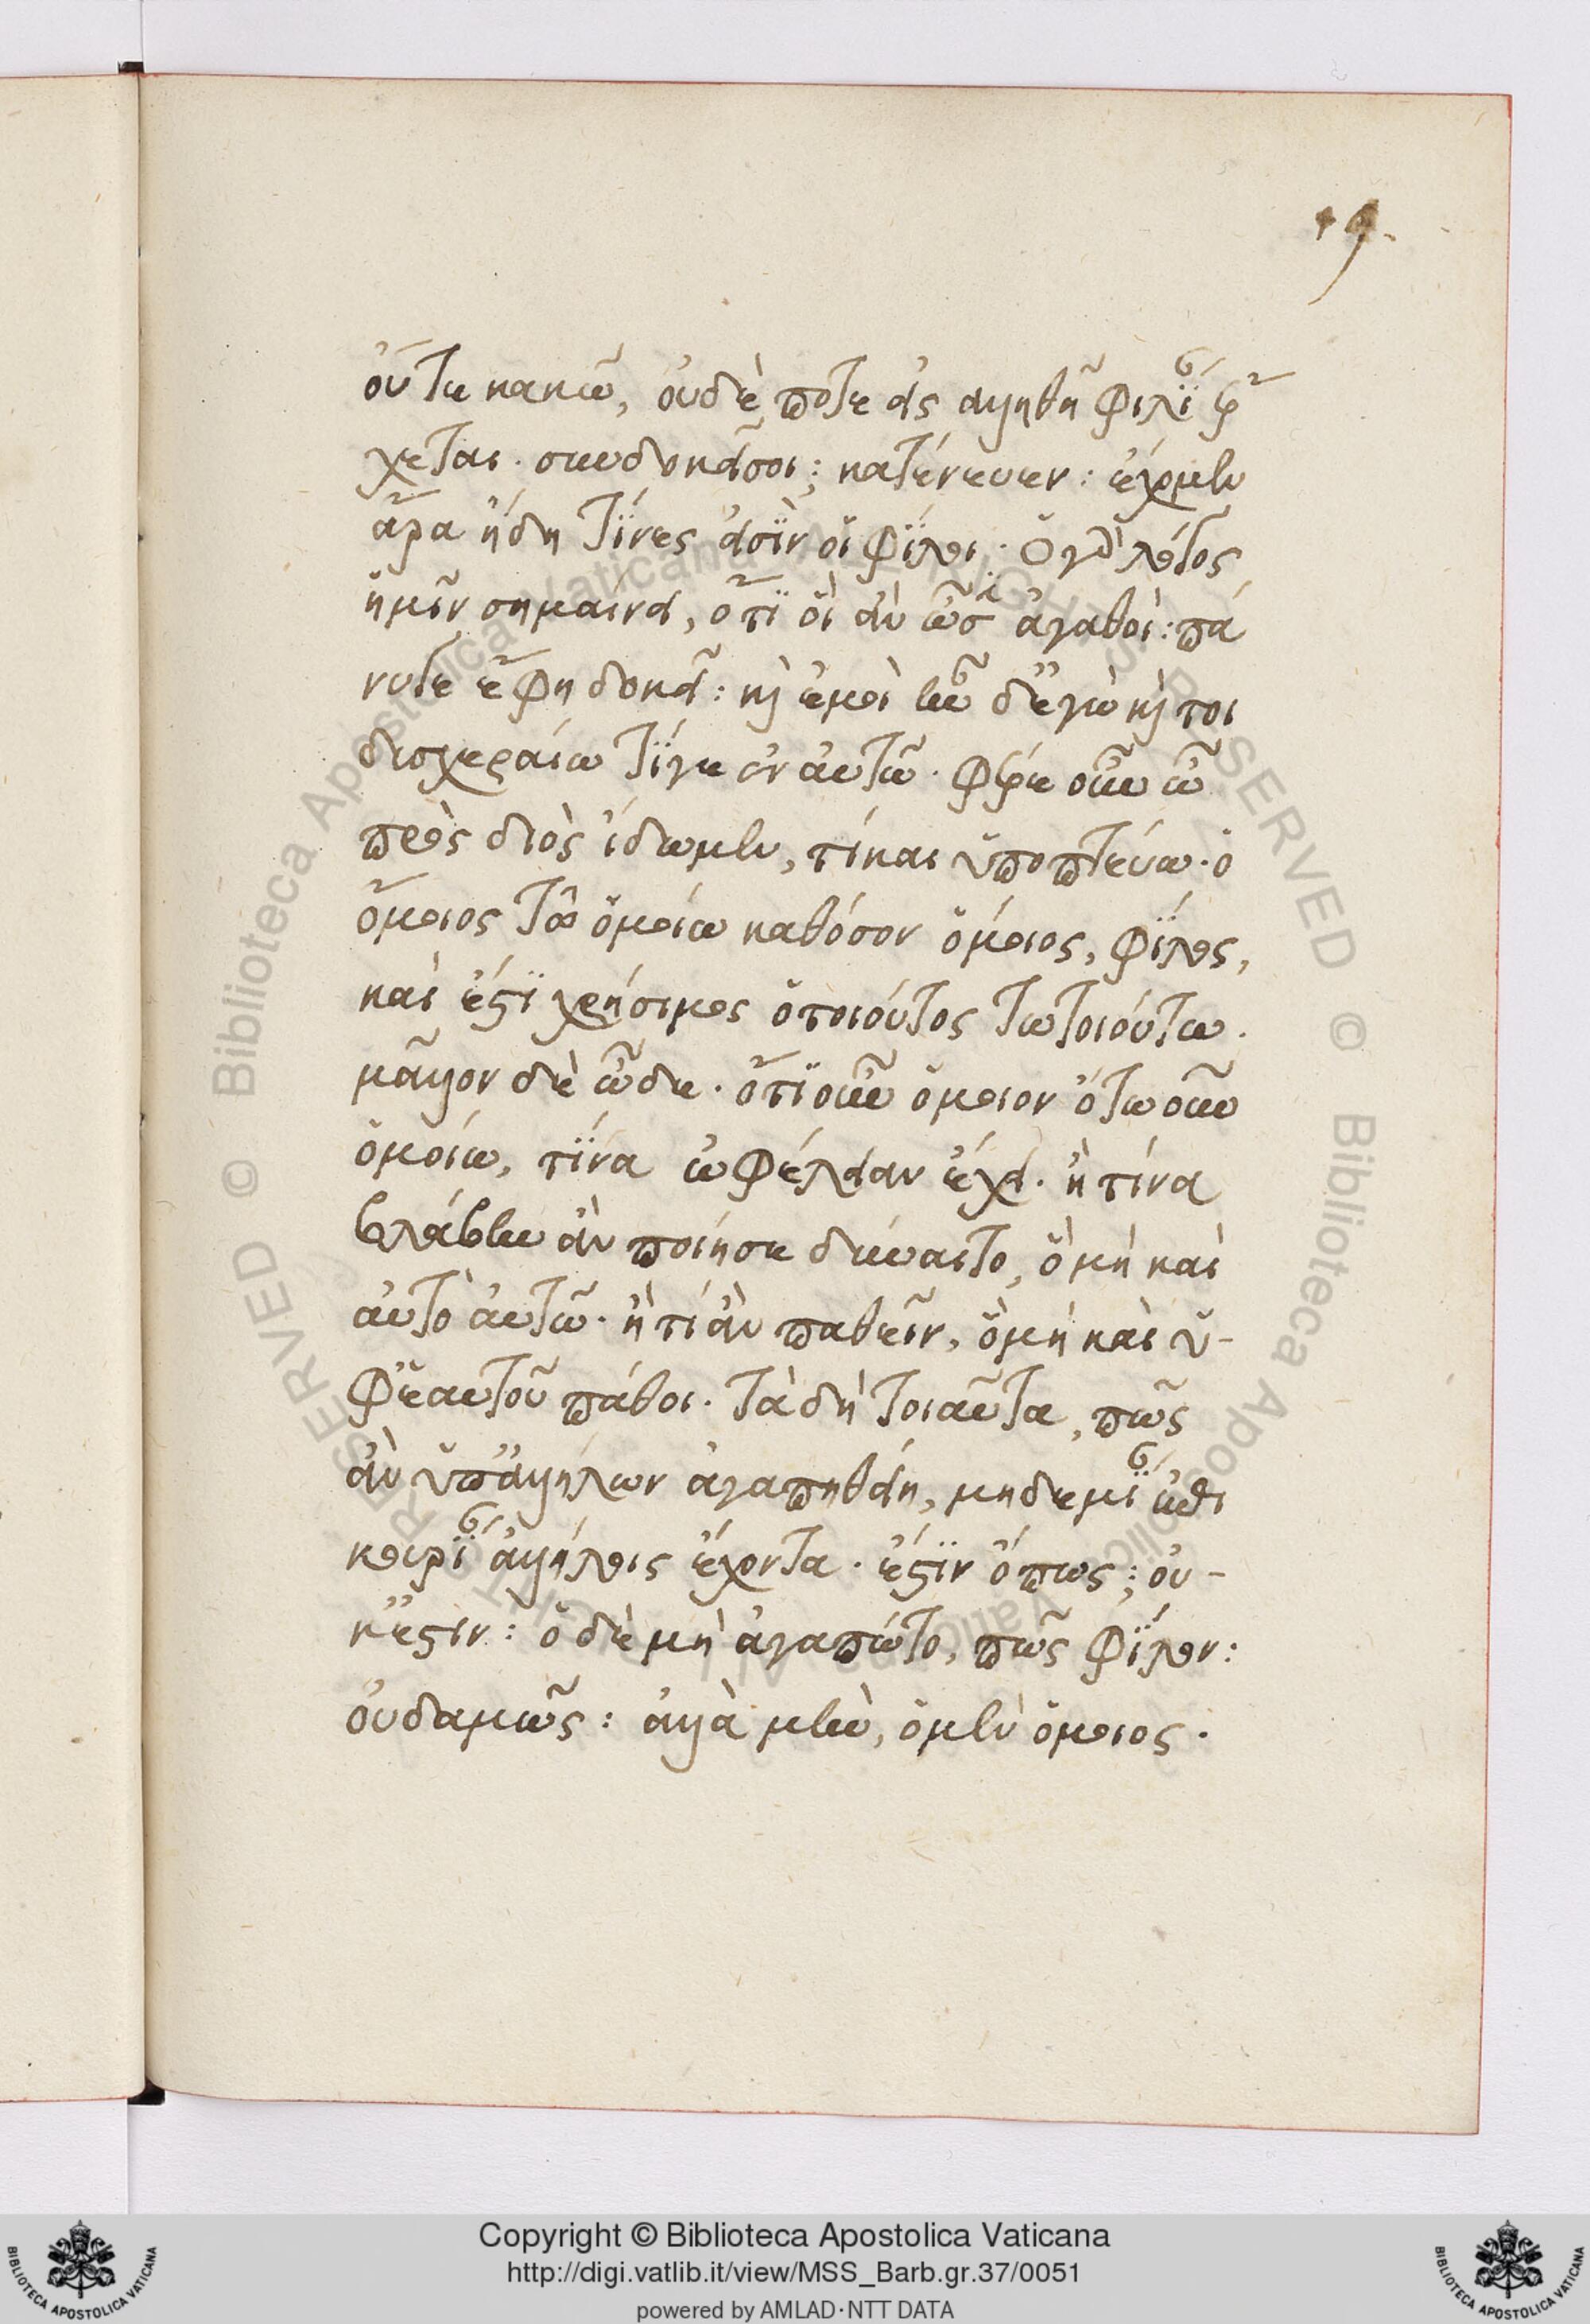 19.
οὔτε κακῶ, οὐδέποτε εἰς ἀληθῆ φιλίαν ἔρ
χεται. συνδοκεῖ σοι; κατένευεν: ἔχομεν
ἆρα ἤδη τίνες εἰσὶν οἱ φίλοι. ὁ γὰρ λόγος
ἡμῖν σημαίνει, ὅτι οἳ ἂν ὦσιν ἀγαθοί: πά
νυ γε ἔφη δοκεῖ: καὶ ἐμοὶ ἦν δ' ἐγὼ καί τοι
δυσχεραίνω τί γε ἐν αὐτῶ. φέρε οὖν ὦ
πρὸς διὸς ἴδωμεν, τί καὶ ὑποπτεύω. ὁ
ὅμοιος τῶ ὁμοίω καθόσον ὅμοιος, φίλος,
καὶ ἔστι χρήσιμος ὁ τοιοῦτος τῶ τοιούτω.
μᾶλλον δὲ ὧδε. ὁτιοῦν ὅμοιον ὁτωοῦν
ὁμοίω, τίνα ὠφέλειαν ἔχει. ἢ τίνα
βλάβην ἂν ποιῆσαι δύναιτο, ὃ μὴ καὶ
αὐτὸ αὑτῶ. ἢ τί ἂν παθεῖν, ὃ μὴ καὶ ὑ-
φ' ἑαυτοῦ πάθοι. τὰ δὴ τοιαῦτα, πῶς
ἂν ὑπ' ἀλλήλων ἀγαπηθείη, μηδεμίαν ἐπι
κουρίαν ἀλλήλοις ἔχοντα. ἔστιν ὅπως; οὐ-
κ ἔστιν: ὃ δὲ μὴ ἀγαπῶτο, πῶς φίλον:
οὐδαμῶς: ἀλλὰ μὴν, ὁ μὲν ὅμοιος.
Copyright © Biblioteca Apostolica Vaticana
http://digi.vatlib.it/view/MSS_Barb.gr.37/0051
powered by AMLAD·NTT DATA